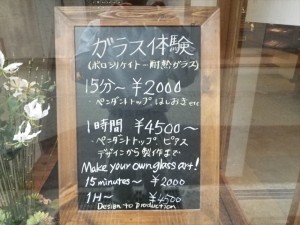 ガラス体験
(ボロシリケイト…耐熱ガラス)
15分～ ¥2000
・ペンダントトップ はしおき etc
1時間 ¥4500～
・ペンダントトップ ピアス
デザインから製作まで
Make your own glass art!
15 minutes～ ¥2000
1H～ ¥4500
Design to production